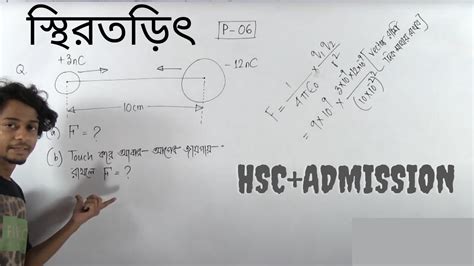 স্থিরতড়িৎ
P-06
Q.
+3nC
-12nC
10cm
(a) F = ?
(b) Touch করে আবার আগের জায়গায়
রাখলে F = ?
F = 1/4πϵ₀ q₁q₂/r²
= 9×10⁹ × 3×10⁻⁹×12×10⁻⁹/(10×10⁻²)²
HSC+ADMISSION